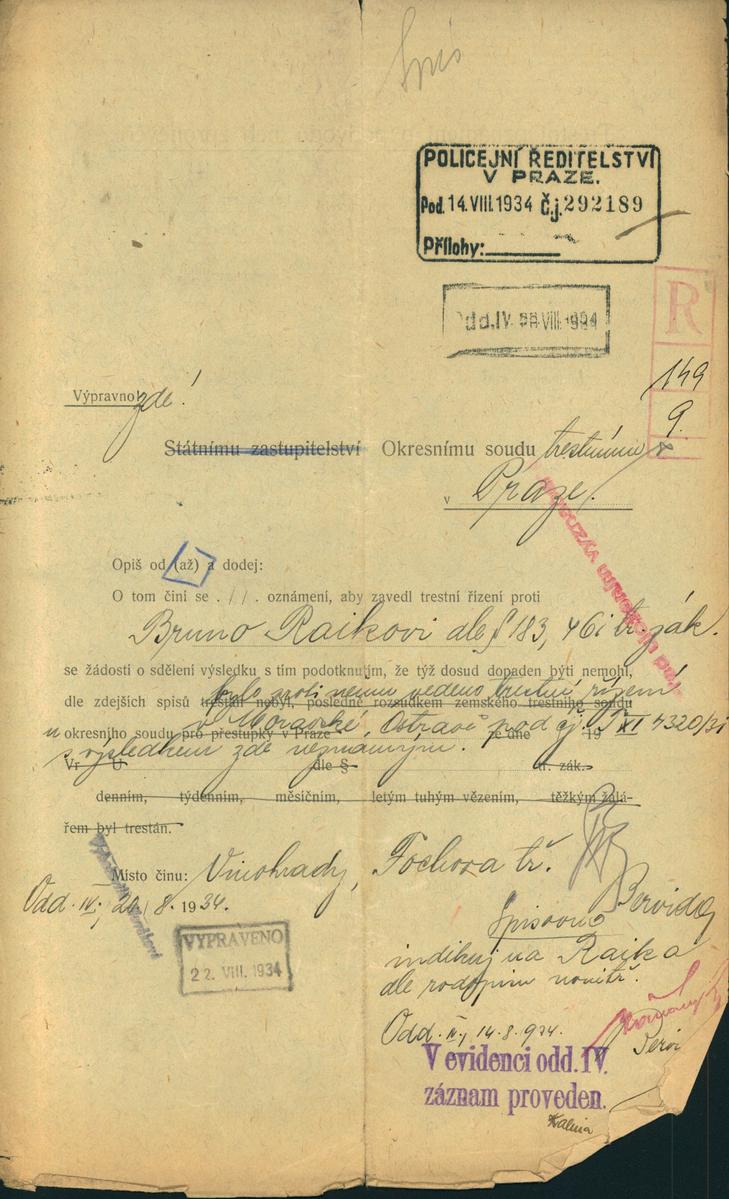 Spis
POLICEJNÍ ŘEDITELSTVÍ
V PRAZE.
Pod. 14.VIII.1934 č.j. 292189
Přílohy:
Odd. IV. VIII. 1934
R
149
9.
Výpravno! zde!
Státnímu zastupitelství Okresnímu soudu trestnímu
v Praze.
Opiš od (až) a dodej:
O tom činí se . / / . oznámení, aby zavedl trestní řízení proti
Bruno Raikovi dle § 183, 461 tr. zák.
se žádostí o sdělení výsledku s tím podotknutím, že týž dosud dopaden býti nemohl,
bylo proti němu vedeno trestní řízení
dle zdejších spisů trestán nebyl, posledně rozsudkem zemského trestního soudu
u v Moravské Ostravě pod čj. T XI 4320/31
okresního soudu pro přestupky v Praze ze dne 19
s výsledkem zde neznámým.
Vr U dle § tr. zák.
denním, týdenním, měsíčním, letým tuhým vězením, těžkým žalá-
řem byl trestán.
Místo činu: Vinohrady, Fochova tř.
Odd. IV., 20/8. 1934.
Spisovno
indikuj na Raika
dle rodopisu uvnitř.
VYPRAVENO
22. VIII. 1934
Odd. IV., 14.8.934.
V evidenci odd. IV.
záznam proveden.
Kalina